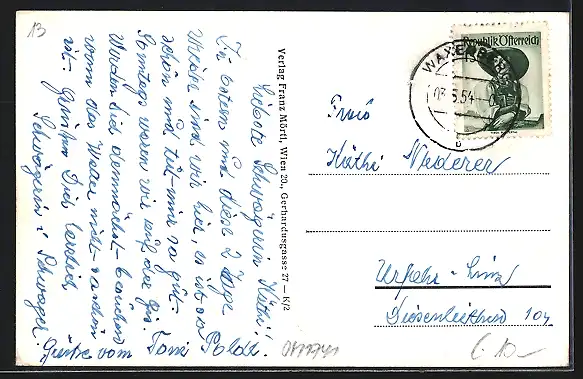 13
Liebste Schwägerin Käthi!
In bereits und diese 2 Tage
Woche sind wir hier, es ist so
schön und tut mir so gut.
Sonntags waren wir auf der Gis.
Werden Dich demnächst besuchen
wenn das Wetter nicht so schön
ist. Grüßen Dich herzlich
Schwägerin u. Schwager.
Grüße vom Toni Poldi.
Verlag Franz Mörtl, Wien 20., Gerhardusgasse 27 - K/2
Republik Österreich
WAXENBERG
03.5.54
b
Frau
Käthi Niederer
Urfahr-Linz
Diesenleithen 104
€ 10-